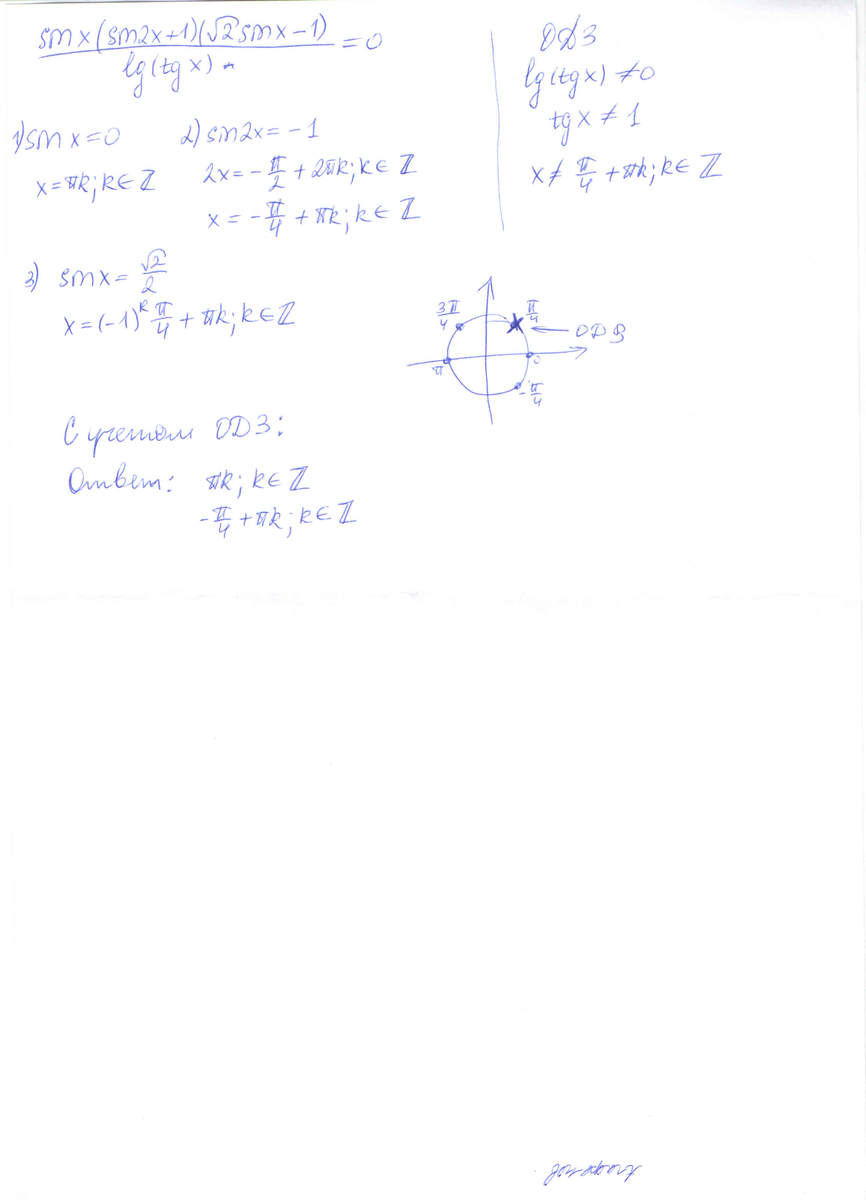 sin x (sin2x+1)(√2 sin x −1) / lg(tg x) = 0
ОДЗ
lg(tg x) ≠ 0
tg x ≠ 1
x ≠ π/4 + πk; k ∈ ℤ
1) sin x = 0
x = πk; k ∈ ℤ
2) sin2x = −1
2x = −π/2 + 2πk; k ∈ ℤ
x = −π/4 + πk; k ∈ ℤ
3) sin x = √2/2
x = (−1)^k π/4 + πk; k ∈ ℤ
3π/4
π/4
ОДЗ
π
0
−π/4
С учетом ОДЗ:
Ответ: πk; k ∈ ℤ
−π/4 + πk; k ∈ ℤ